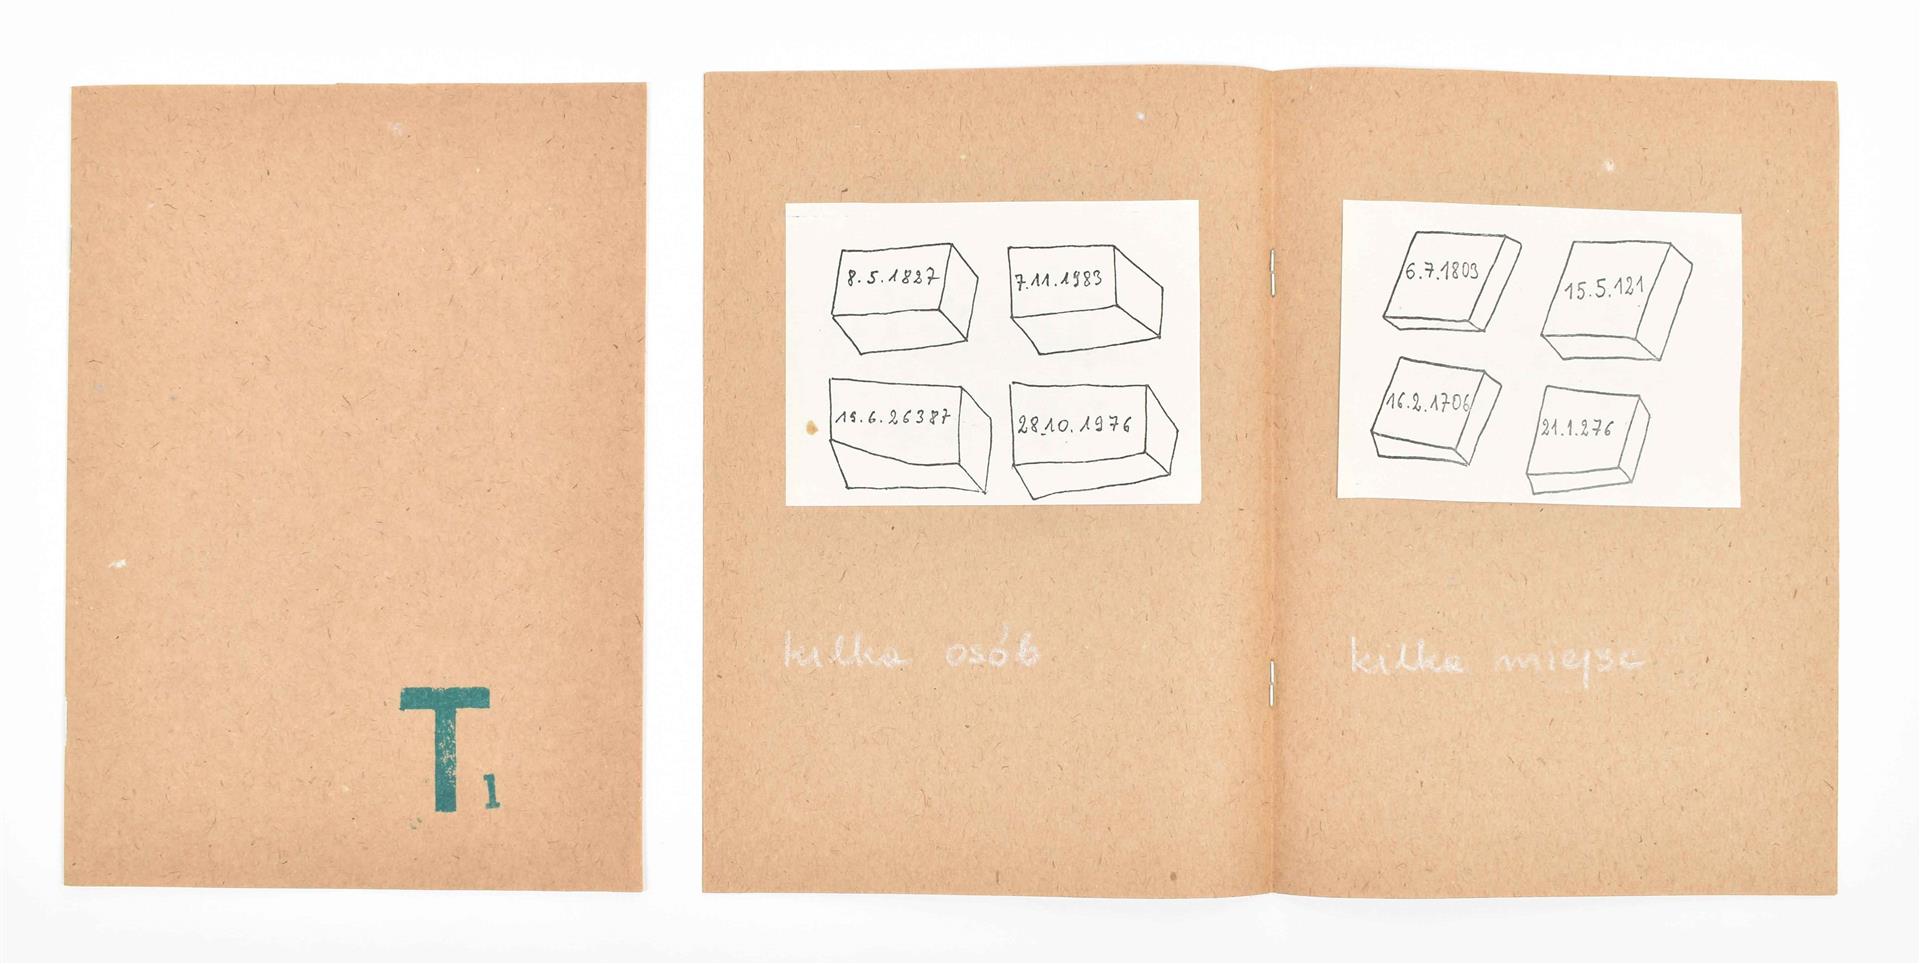 T1
8.5.1827
7.11.1983
19.6.26387
28.10.1976
kilka osób
6.7.1803
15.5.121
16.2.1706
21.1.276
kilka miejsc